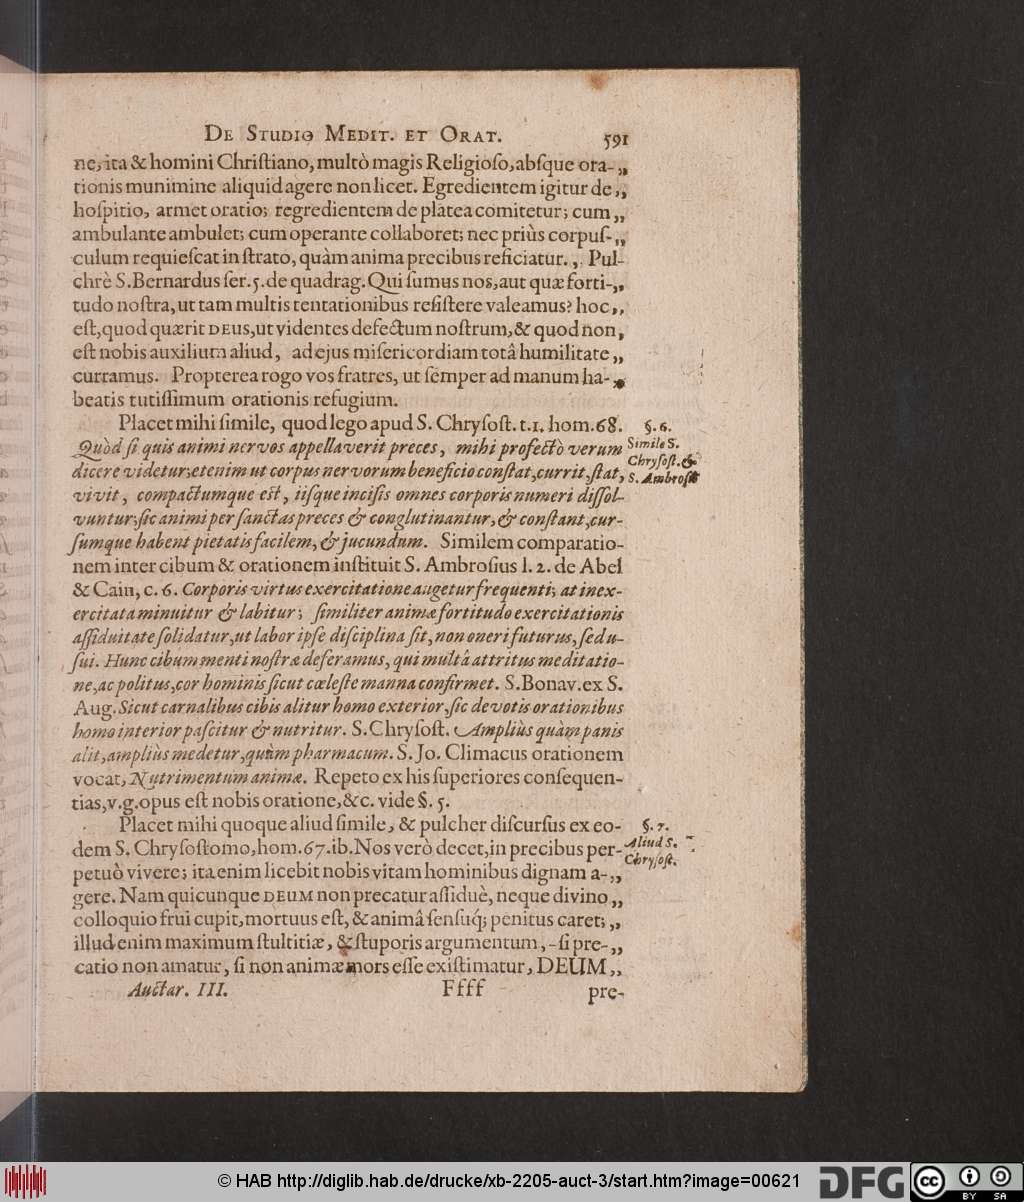 DE STUDIO MEDIT. ET ORAT. 591
ne, ita & homini Chriſtiano, multò magis Religioſo, abſque ora- „
tionis munimine aliquid agere non licet. Egredientem igitur de „
hoſpitio, armet oratio; regredientem de platea comitetur; cum „
ambulante ambulet; cum operante collaboret; nec priùs corpuſ- „
culum requieſcat in ſtrato, quàm anima precibus reficiatur. „ Pul-
chrè S. Bernardus ſer. 5. de quadrag. Qui ſumus nos, aut quæ forti- „
tudo noſtra, ut tam multis tentationibus reſiſtere valeamus? hoc „
eſt, quod quærit DEUS, ut videntes defectum noſtrum, & quod non „
eſt nobis auxilium aliud, ad ejus miſericordiam totâ humilitate „
curramus. Propterea rogo vos fratres, ut ſemper ad manum ha- „
beatis tutiſſimum orationis refugium.
Placet mihi ſimile, quod lego apud S. Chryſoſt. t. 1. hom. 68. §. 6.
Quòd ſi quis animi nervos appellaverit preces, mihi profectò verum Simile S.
dicere videtur; etenim ut corpus nervorum beneficio conſtat, currit, ſtat, Chryſoſt. &
vivit, compactumque eſt, iiſque inciſis omnes corporis numeri diſſol- S. Ambroſii
vuntur; ſic animi per ſanctas preces & conglutinantur, & conſtant, cur-
ſumque habent pietatis facilem, & jucundum. Similem comparatio-
nem inter cibum & orationem inſtituit S. Ambroſius l. 2. de Abel
& Cain, c. 6. Corporis virtus exercitatione augetur frequenti; at inex-
ercitata minuitur & labitur; ſimiliter animæ fortitudo exercitationis
aſſiduitate ſolidatur, ut labor ipſe diſciplina ſit, non oneri futurus, ſed u-
ſui. Hunc cibum menti noſtræ deferamus, qui multâ attritus meditatio-
ne, ac politus, cor hominis ſicut cæleſte manna confirmet. S. Bonav. ex S.
Aug. Sicut carnalibus cibis alitur homo exterior, ſic devotis orationibus
homo interior paſcitur & nutritur. S. Chryſoſt. Ampliùs quàm panis
alit, ampliùs medetur, quàm pharmacum. S. Jo. Climacus orationem
vocat, Nutrimentum animæ. Repeto ex his ſuperiores conſequen-
tias, v. g. opus eſt nobis oratione, &c. vide §. 5.
Placet mihi quoque aliud ſimile, & pulcher diſcurſus ex eo- §. 7.
dem S. Chryſoſtomo, hom. 67. ib. Nos verò decet, in precibus per- Aliud S.
petuò vivere; ita enim licebit nobis vitam hominibus dignam a- „ Chryſoſt.
gere. Nam quicunque DEUM non precatur aſſiduè, neque divino „
colloquio frui cupit, mortuus eſt, & animâ ſenſuq́; penitus caret; „
illud enim maximum ſtultitiæ, & ſtuporis argumentum, ſi pre- „
catio non amatur, ſi non animæ mors eſſe exiſtimatur, DEUM „
Auctar. III. Ffff pre-
© HAB http://diglib.hab.de/drucke/xb-2205-auct-3/start.htm?image=00621 DFG cc BY SA